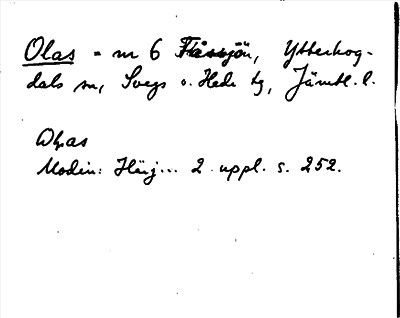 Olas = nr 6 Flåssjön, Ytterhog-
dals sn, Svegs o. Hede tg, Jämtl. l.
Modin: Härj... 2 uppl. s. 252.